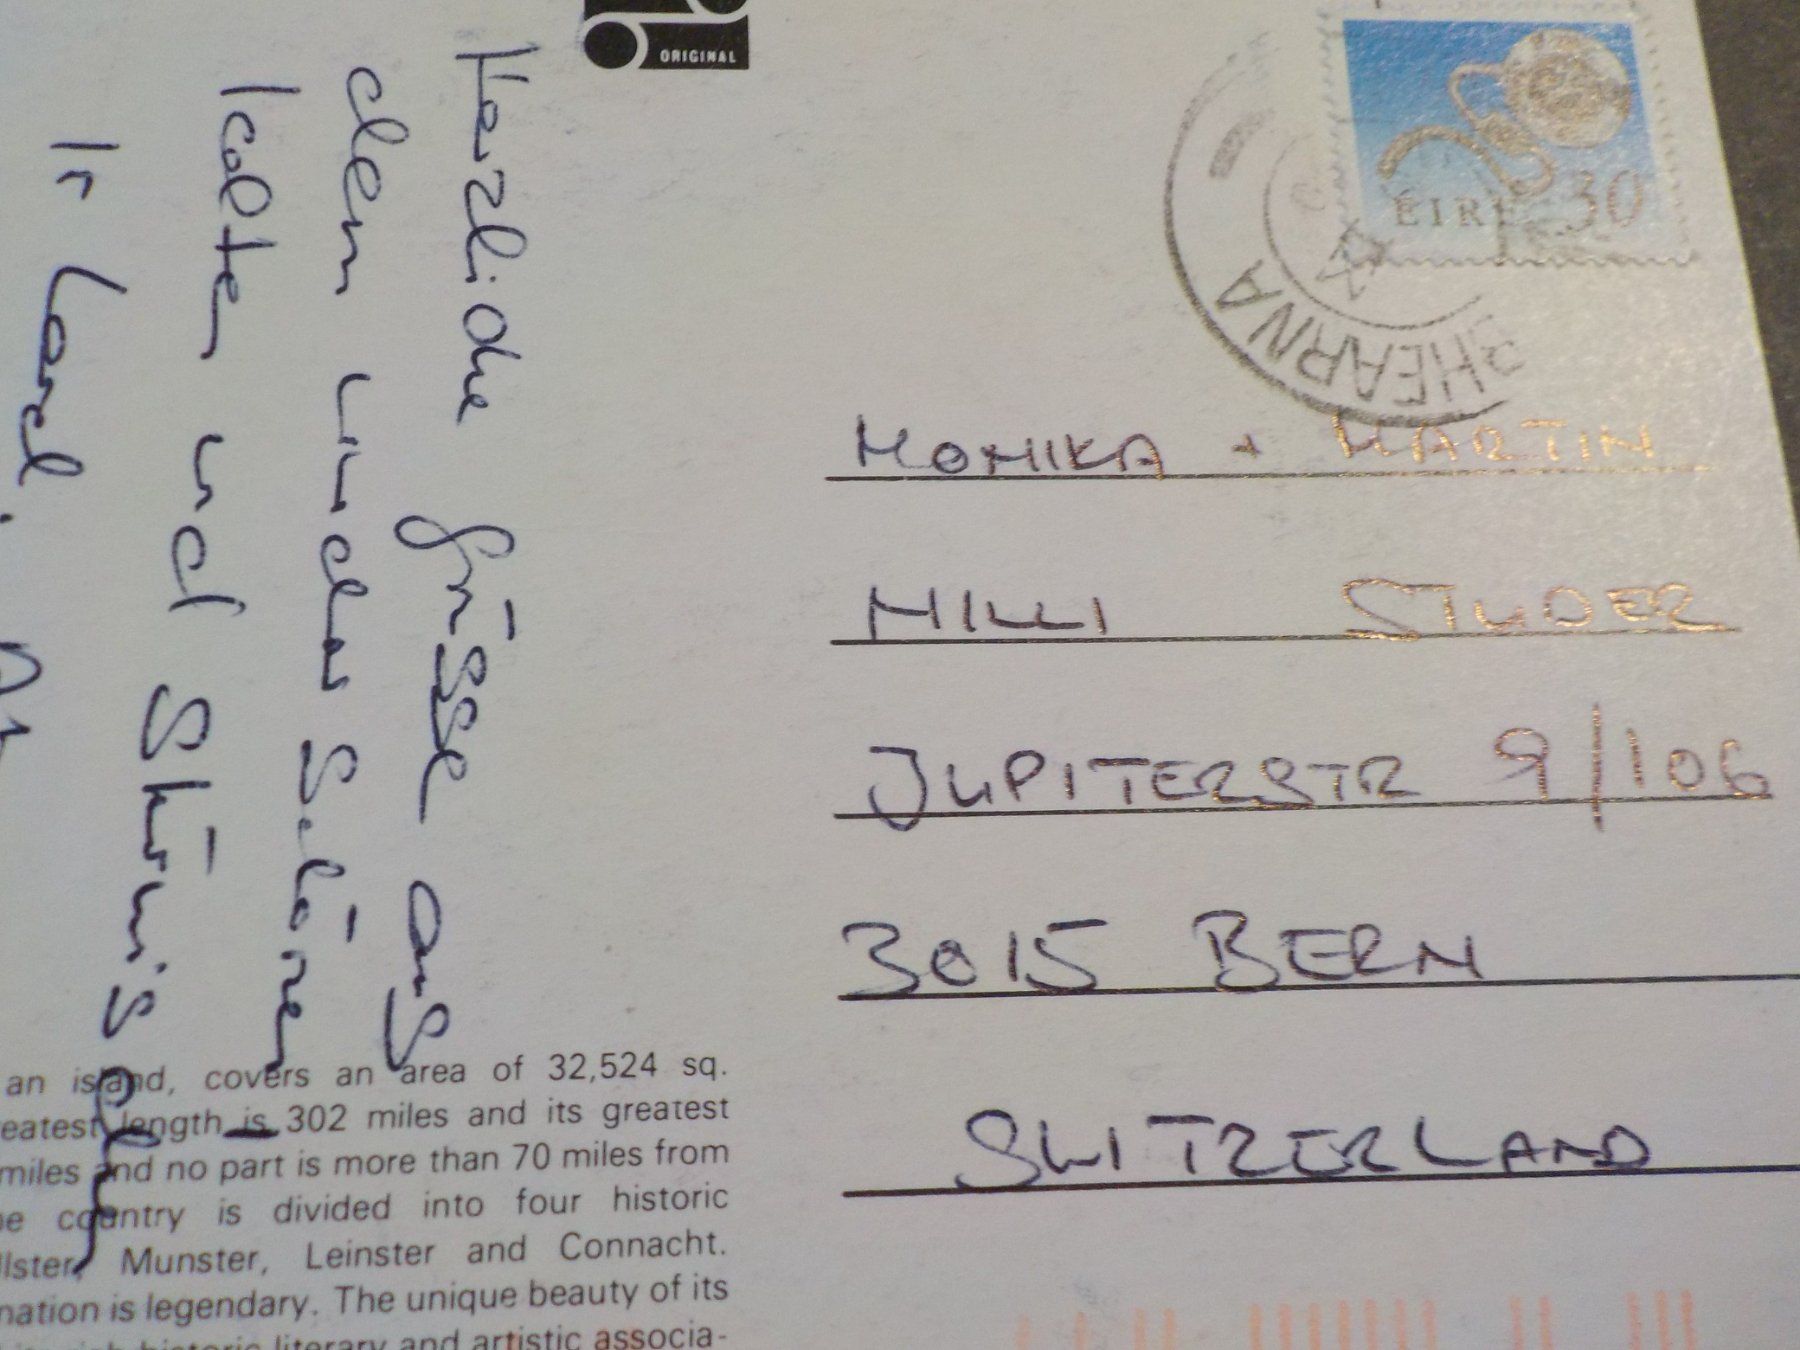 ORIGINAL
Herzliche Grüsse aus
dem wunderschönen
kalten und Stürmischen
Irland.
ÉIRE 30
HEARNA
MONIKA + MARTIN
MILLI STUDER
JUPITERSTR 9/106
3015 BERN
SWITZERLAND
an island, covers an area of 32,524 sq.
eatest length is 302 miles and its greatest
miles and no part is more than 70 miles from
country is divided into four historic
lster, Munster, Leinster and Connacht.
nation is legendary. The unique beauty of its
historic literary and artistic associa-